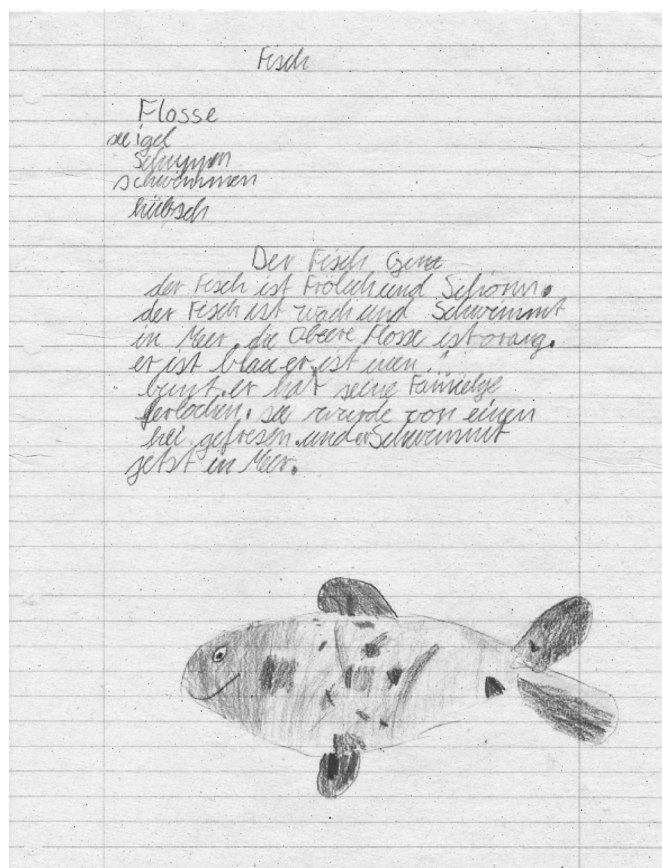 Fisch
Flosse
seeigel
Schuppen
schwimmen
hübsch
Der Fisch
der Fisch ist Frölich und
der Fisch ist und Schwimmt
in Meer. die Obere Flosse ist orang.
er ist blau er ist
bunt. er hat seine
ferlohren. sie wurde von einen
hei gefresen. und er Schwimmt
jetst in Meer.